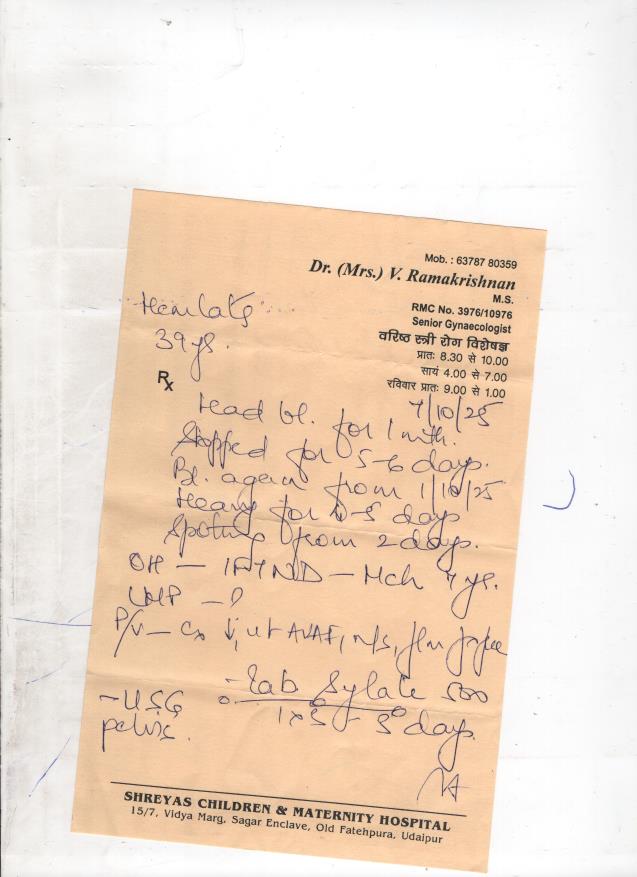 Mob. : 63787 80359
Dr. (Mrs.) V. Ramakrishnan
M.S.
RMC No. 3976/10976
Senior Gynaecologist
वरिष्ठ स्त्री रोग विशेषज्ञ
प्रातः 8.30 से 10.00
सायं 4.00 से 7.00
रविवार प्रातः 9.00 से 1.00
Hemlata
39 yr.
Rx
7/10/25
Head bl. for 1 mth.
Stopped for 5-6 days.
Bl. again from 1/10/25
Heavy for 4-5 days
Spotting from 2 days.
OH - 1FTND - Mch 7 yr.
LMP - ?
P/V - Cx ↓, ut AVAF, n/s,
- Tab Sylate 500
1x3 - 3 days.
- USG
pelvis.
SHREYAS CHILDREN & MATERNITY HOSPITAL
15/7, Vidya Marg, Sagar Enclave, Old Fatehpura, Udaipur